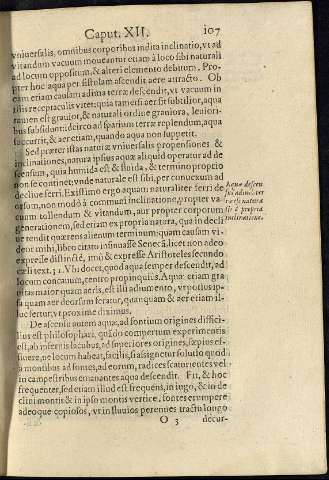 Caput. XII. 107
vniuersalis, omnibus corporibus indita inclinatio, vt ad
vitandum vacuum moueantur etiam à loco sibi naturali
ad locum oppositum, & alteri elemento debitum. Pro-
pter hoc aqua per fistulam ascendit aere attracto. Ob
eam etiam causam ad ima terræ descendit, vt vacuum in
illis receptaculis vitet: quia tametsi aer sit subtilior, aqua
tamen est grauior, & naturali ordine grauiora, leuiori-
bus subsidunt: idcirco ad spatium terræ replendum, aqua
succurrit, & aer etiam, quando aqua non suppetit.
Sed præter istas naturæ vniuersalis propensiones &
inclinationes, natura ipsius aquæ aliquid operatur ad de
scensum, quia humida est & fluida, & termino proprio
non se continet: vnde naturale est sibi, per conuexum ad
decliue ferri. Existimo ergo aquam naturaliter ferri de
orsum, non modò à communi inclinatione, propter va-
cuum tollendum & vitandum, aut propter corporum
generationem, sed etiam ex propria natura, qua in decli
ue tendit quærens alienum terminum: quam causam vi-
deor mihi, libro citato insinuasse Senec. à, licet non adeo
expresse distinctè, imò & expresse Aristoteles secundo
cæli text. 31. Vbi docet, quod aqua semper descendit, ad
locum concauum, centro propinquius. Aquæ etiam gra
uitas maior quam aeris, est illi adiumento, vt potius ip-
sa quam aer deorsum feratur, quanquam & aer etiam il-
luc fertur, vt proxime diximus.
Aquæ descen
natura
propria
inclinatione.
De ascensu autem aquæ, ad fontium origines difficil-
lius est philosophari, quâdo compertum experimentis
est, ab infernis lacubus, ad superiores origines, sæpius es-
fluere, ne locum habeat, facilis, si assignetur solutio quod
à montibus ad fontes, ad eorum, radices scaturientes vel
in campestribus emanantes aqua descendit. Fit, & hoc
frequenter, sed etiam illud est frequens, in iugo, & in de
cliui montis & in ipso montis vertice, fontes erumpere
adeoque copiosos, vt in fluuios perennes tractu longo
O 3 decur-